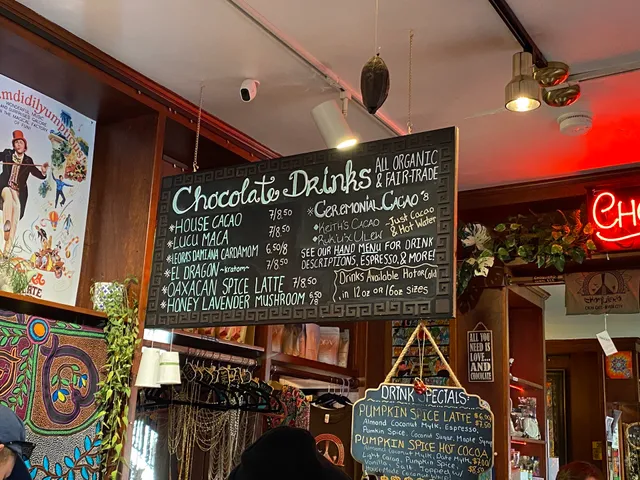 Chocolate Drinks ALL ORGANIC
& FAIR-TRADE
*HOUSE CACAO 7/8.50
*LUCU MACA 7/8.50
*LEORIS DAMIANA CARDAMOM 6.50/8
*EL DRAGON ~kratom~ 7/8.50
*OAXACAN SPICE LATTE 7/8.50
*HONEY LAVENDER MUSHROOM 6.50/8
*CEREMONIAL CACAO*8
*KEITH'S CACAO
Just Cacao
& Hot Water
SEE OUR HAND MENU FOR DRINK
DESCRIPTIONS, ESPRESSO, & MORE!
Drinks Available Hot or Cold
in 12oz or 16oz sizes
CHO
ALL YOU
NEED IS
LOVE...
AND
CHOCOLATE
DRINK SPECIALS
PUMPKIN SPICE LATTE
Almond Coconut Mylk, Espresso,
Pumpkin Spice, Coconut Sugar, Maple Syrup
PUMPKIN SPICE HOT COCOA
Almond Coconut Mylk, Date Mylk,
Light Cacao, Pumpkin Spice,
Vanilla, Salt, Topped w/